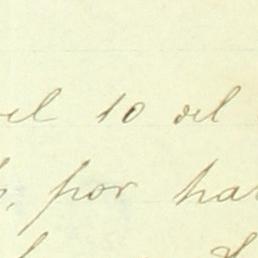 el 10 del
por ha